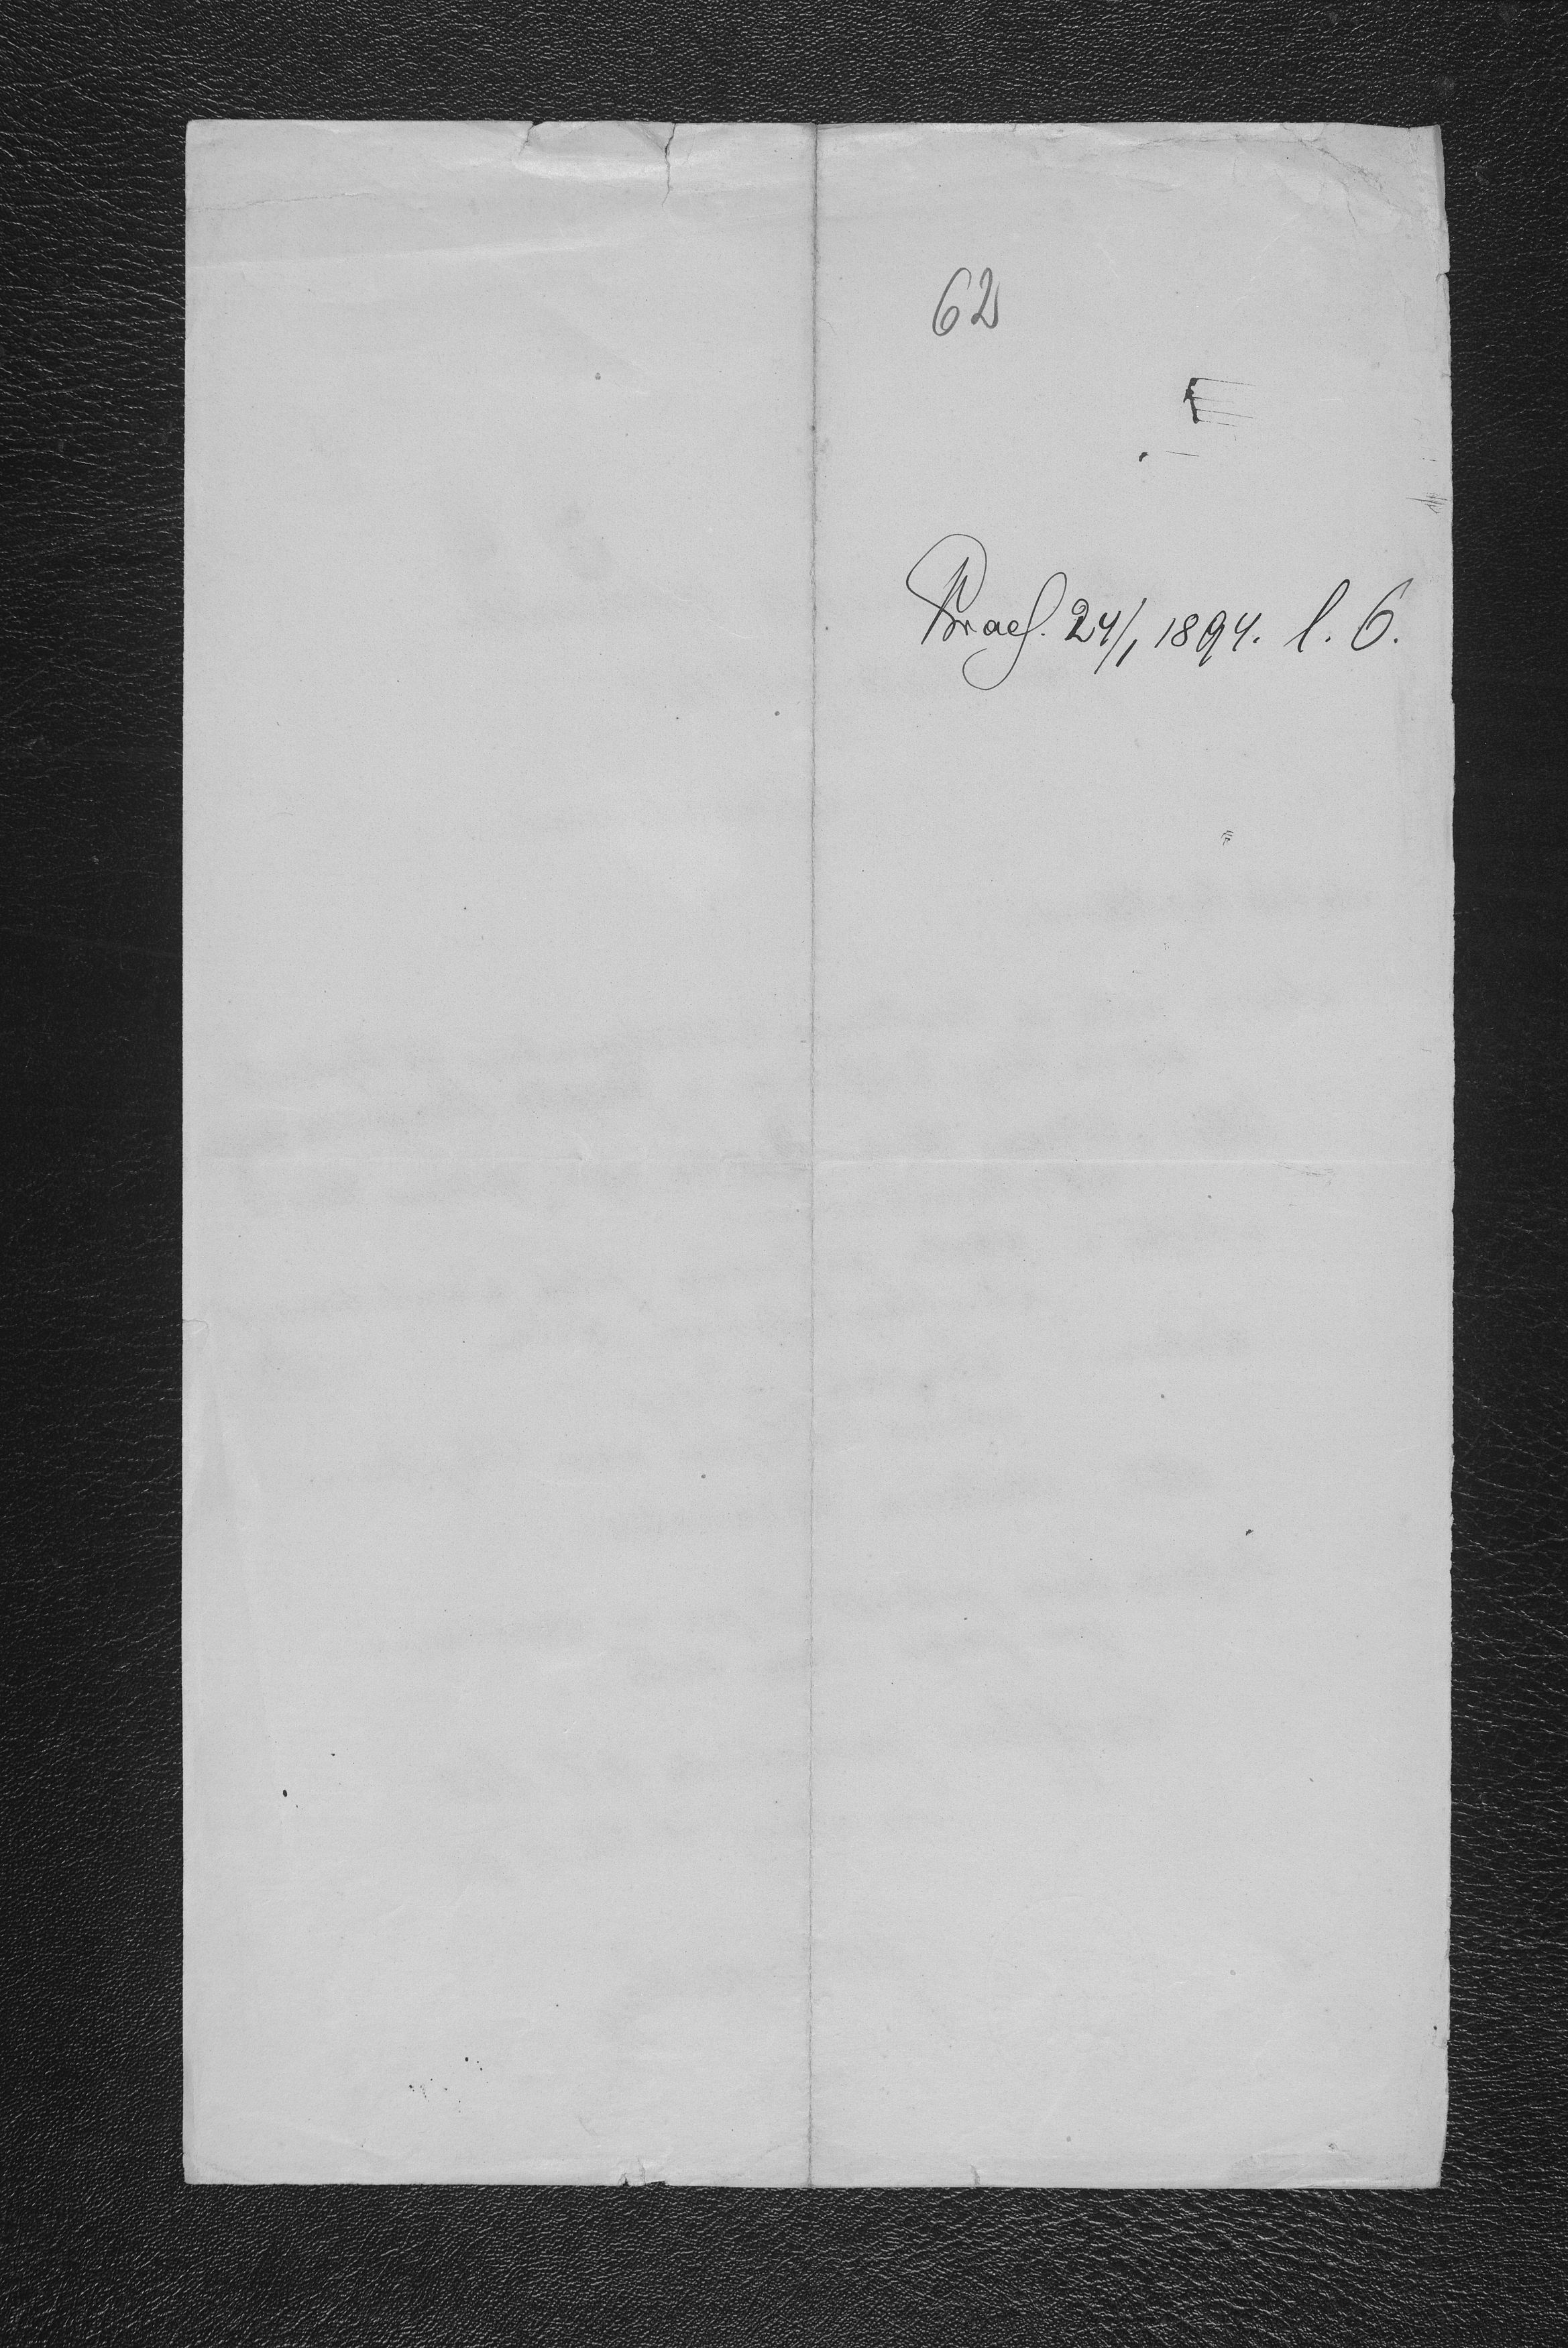 62
Praes. 24/1 1894. l. 6.